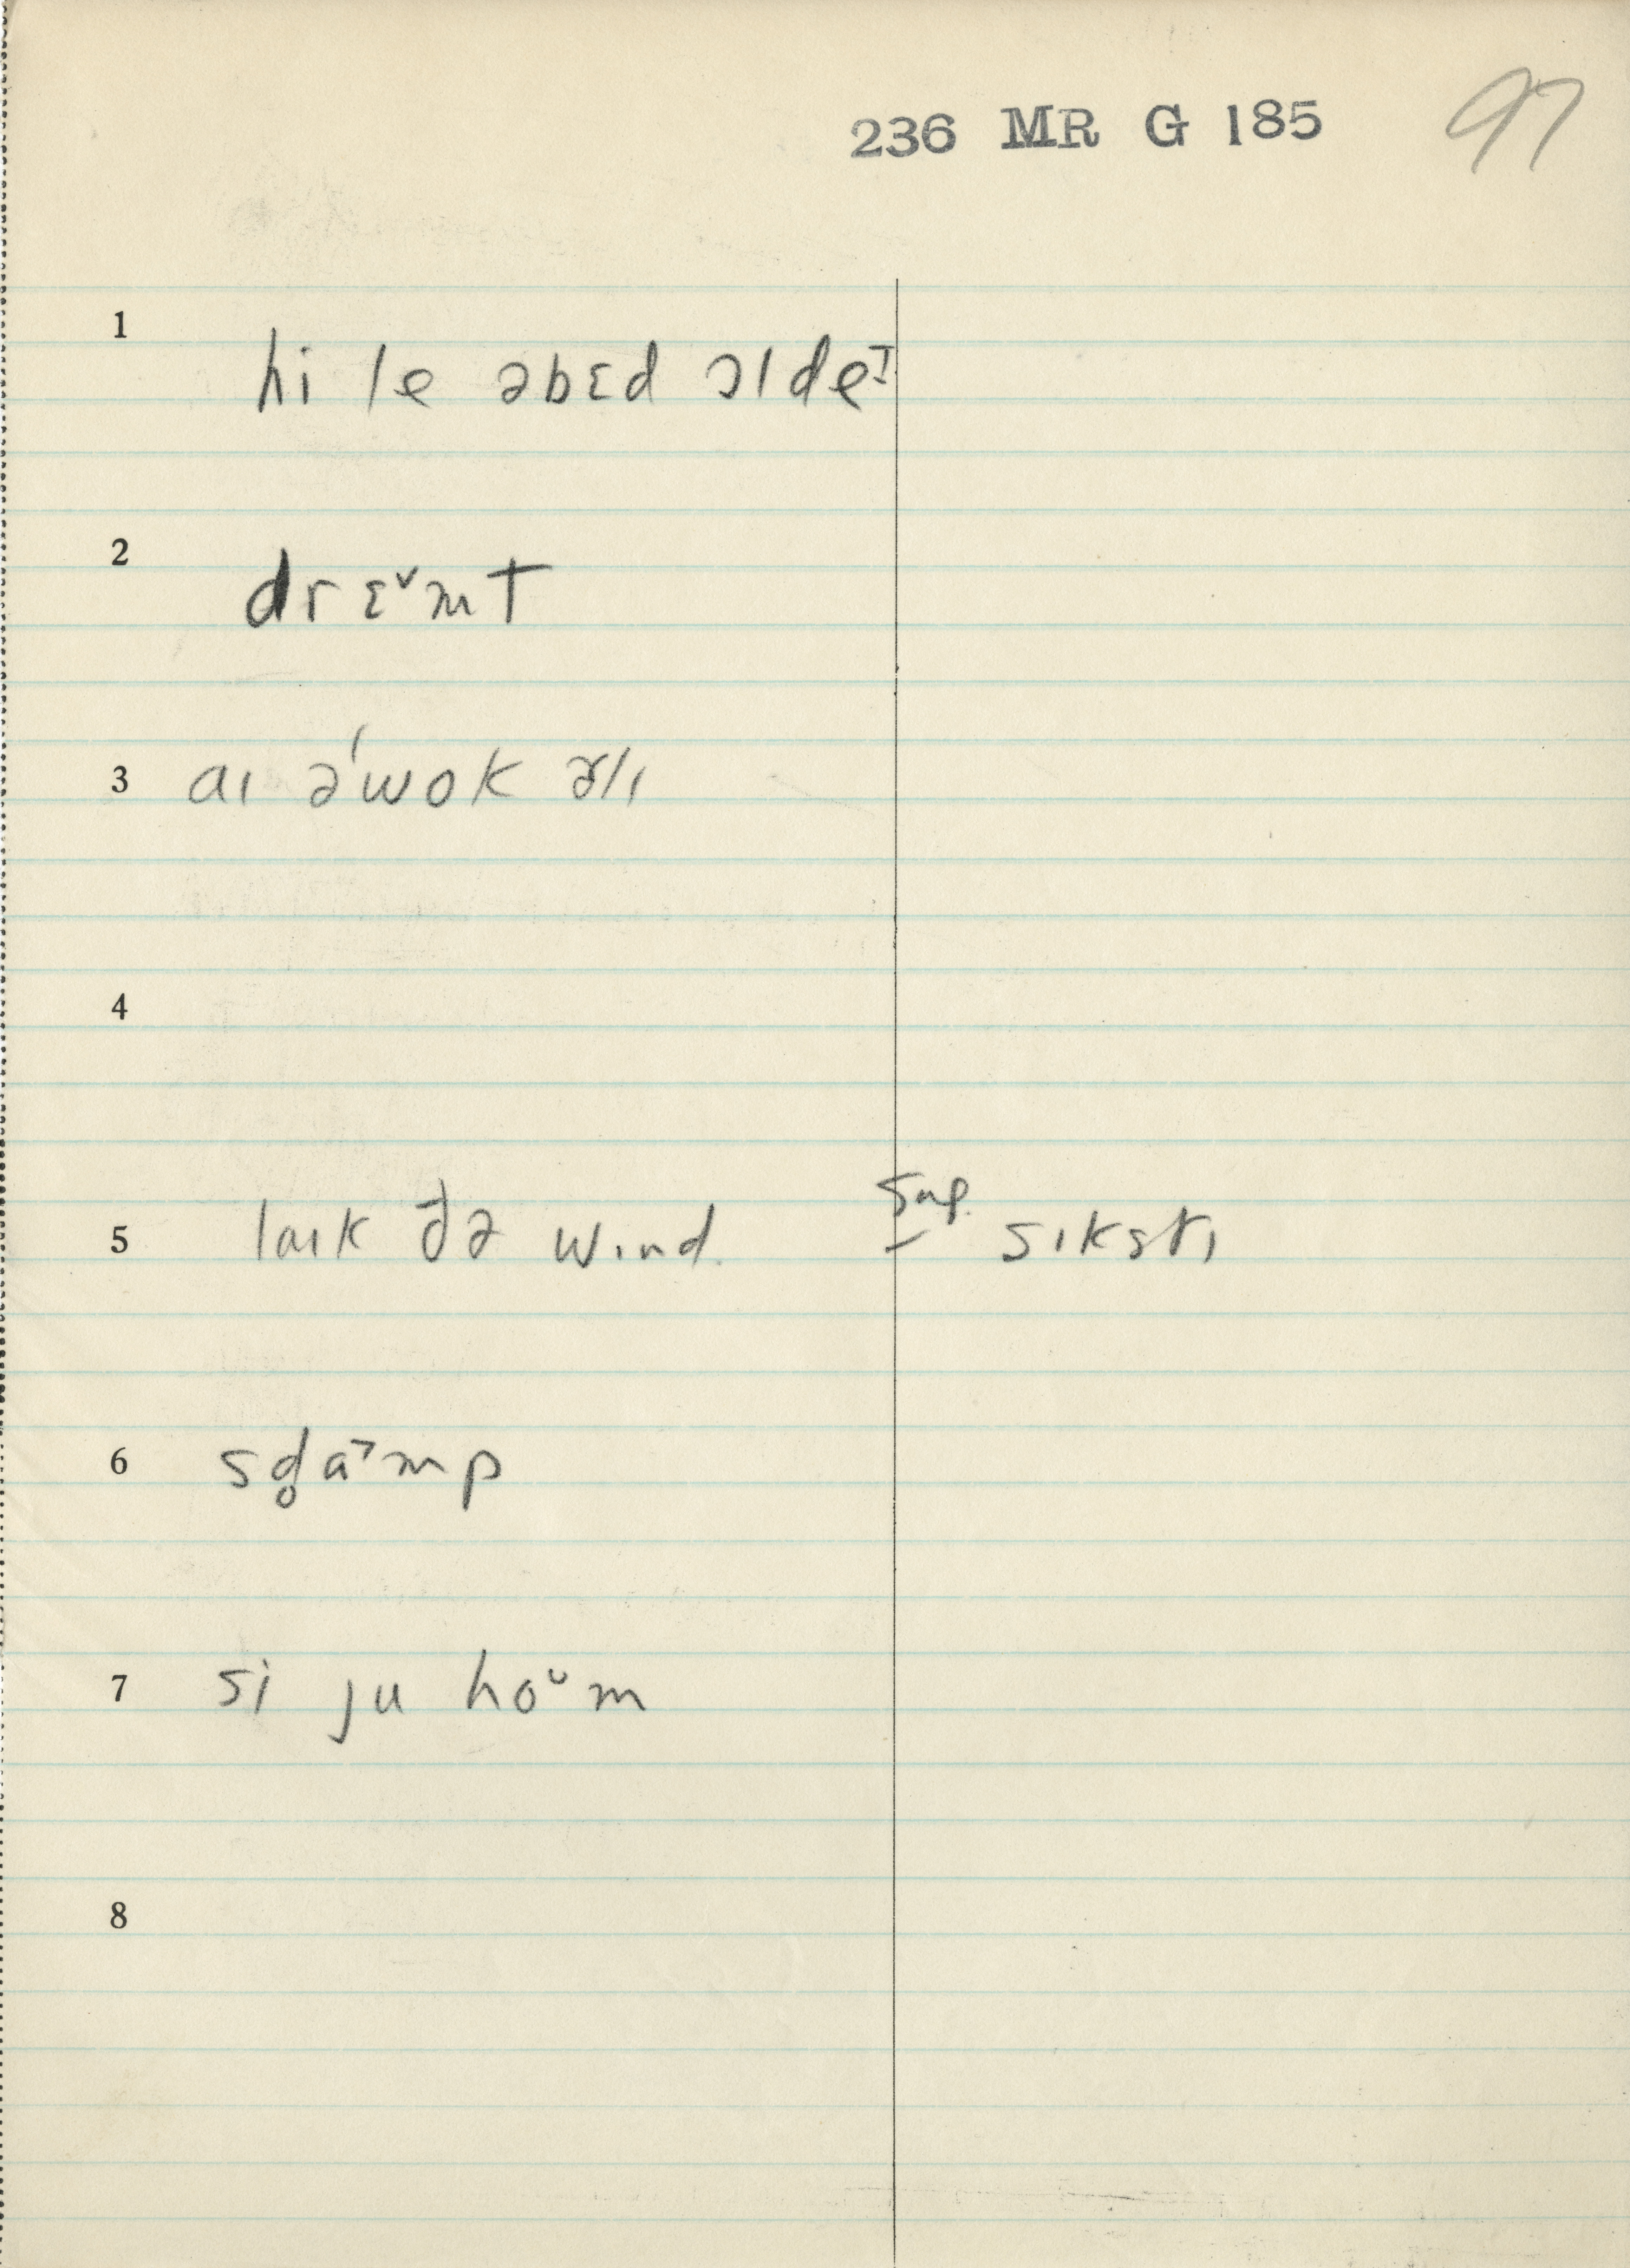 236 MR G 185 97
1 hi le əbɛd ɔldeɪ
2 drɛ˅mt
3 aɪ ə'wok ɚlɪ
4
5 laɪk ðə wɪnd. sug. – sɪkstɪ
6 sd̥a˃mp
7 si ju hoᵕm
8